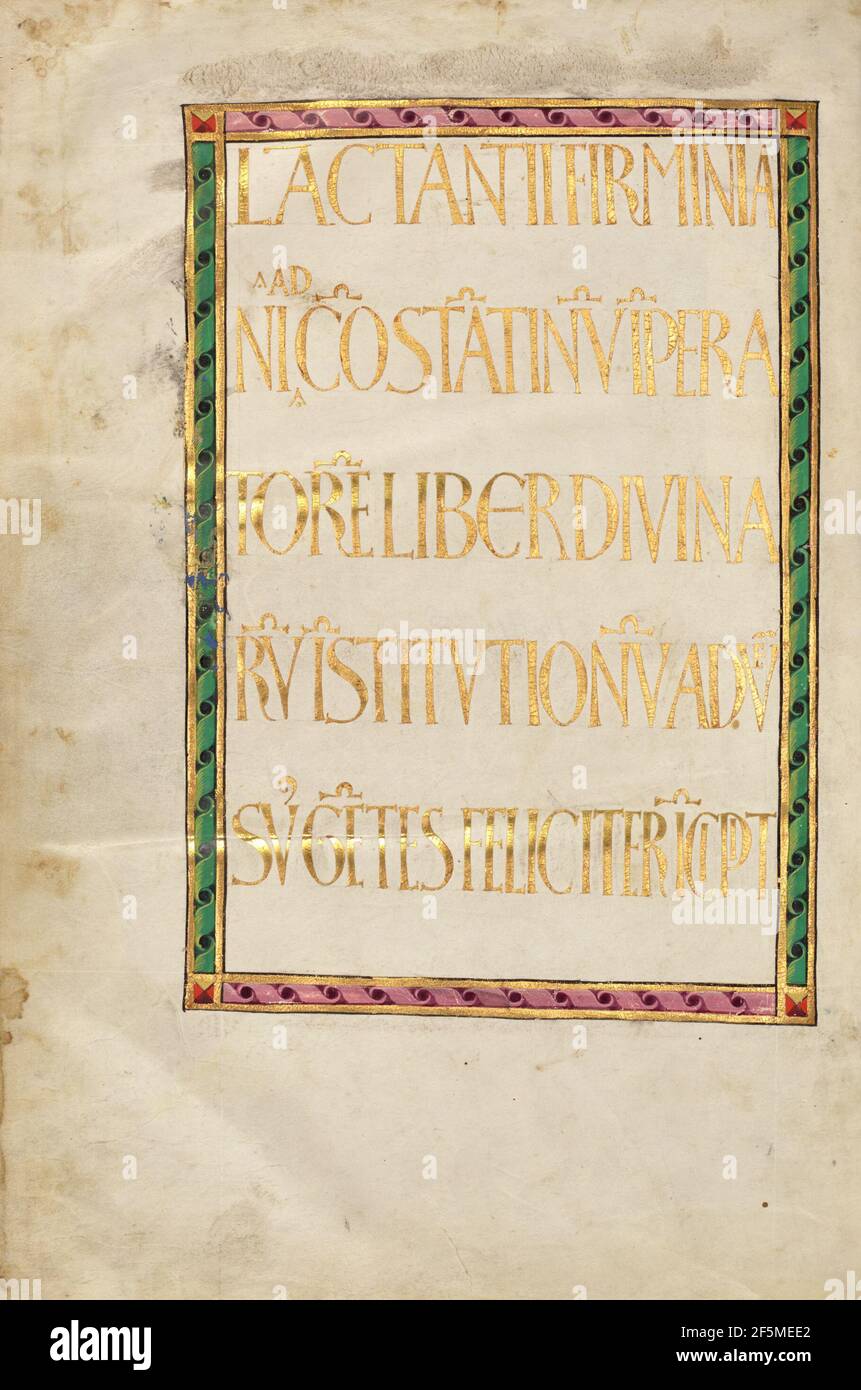 LACTANTII FIRMINIA
AD
NI C̄OSTĀTINV̄ ĪPERA
TOR̄E LIBER DIVINA
RV̄ ĪSTITVTIONV̄ ADV̄ER
SVʼ GĒTES FELICITER ĪCIPIT
alamy
Image ID: 2F5MEE2
www.alamy.com